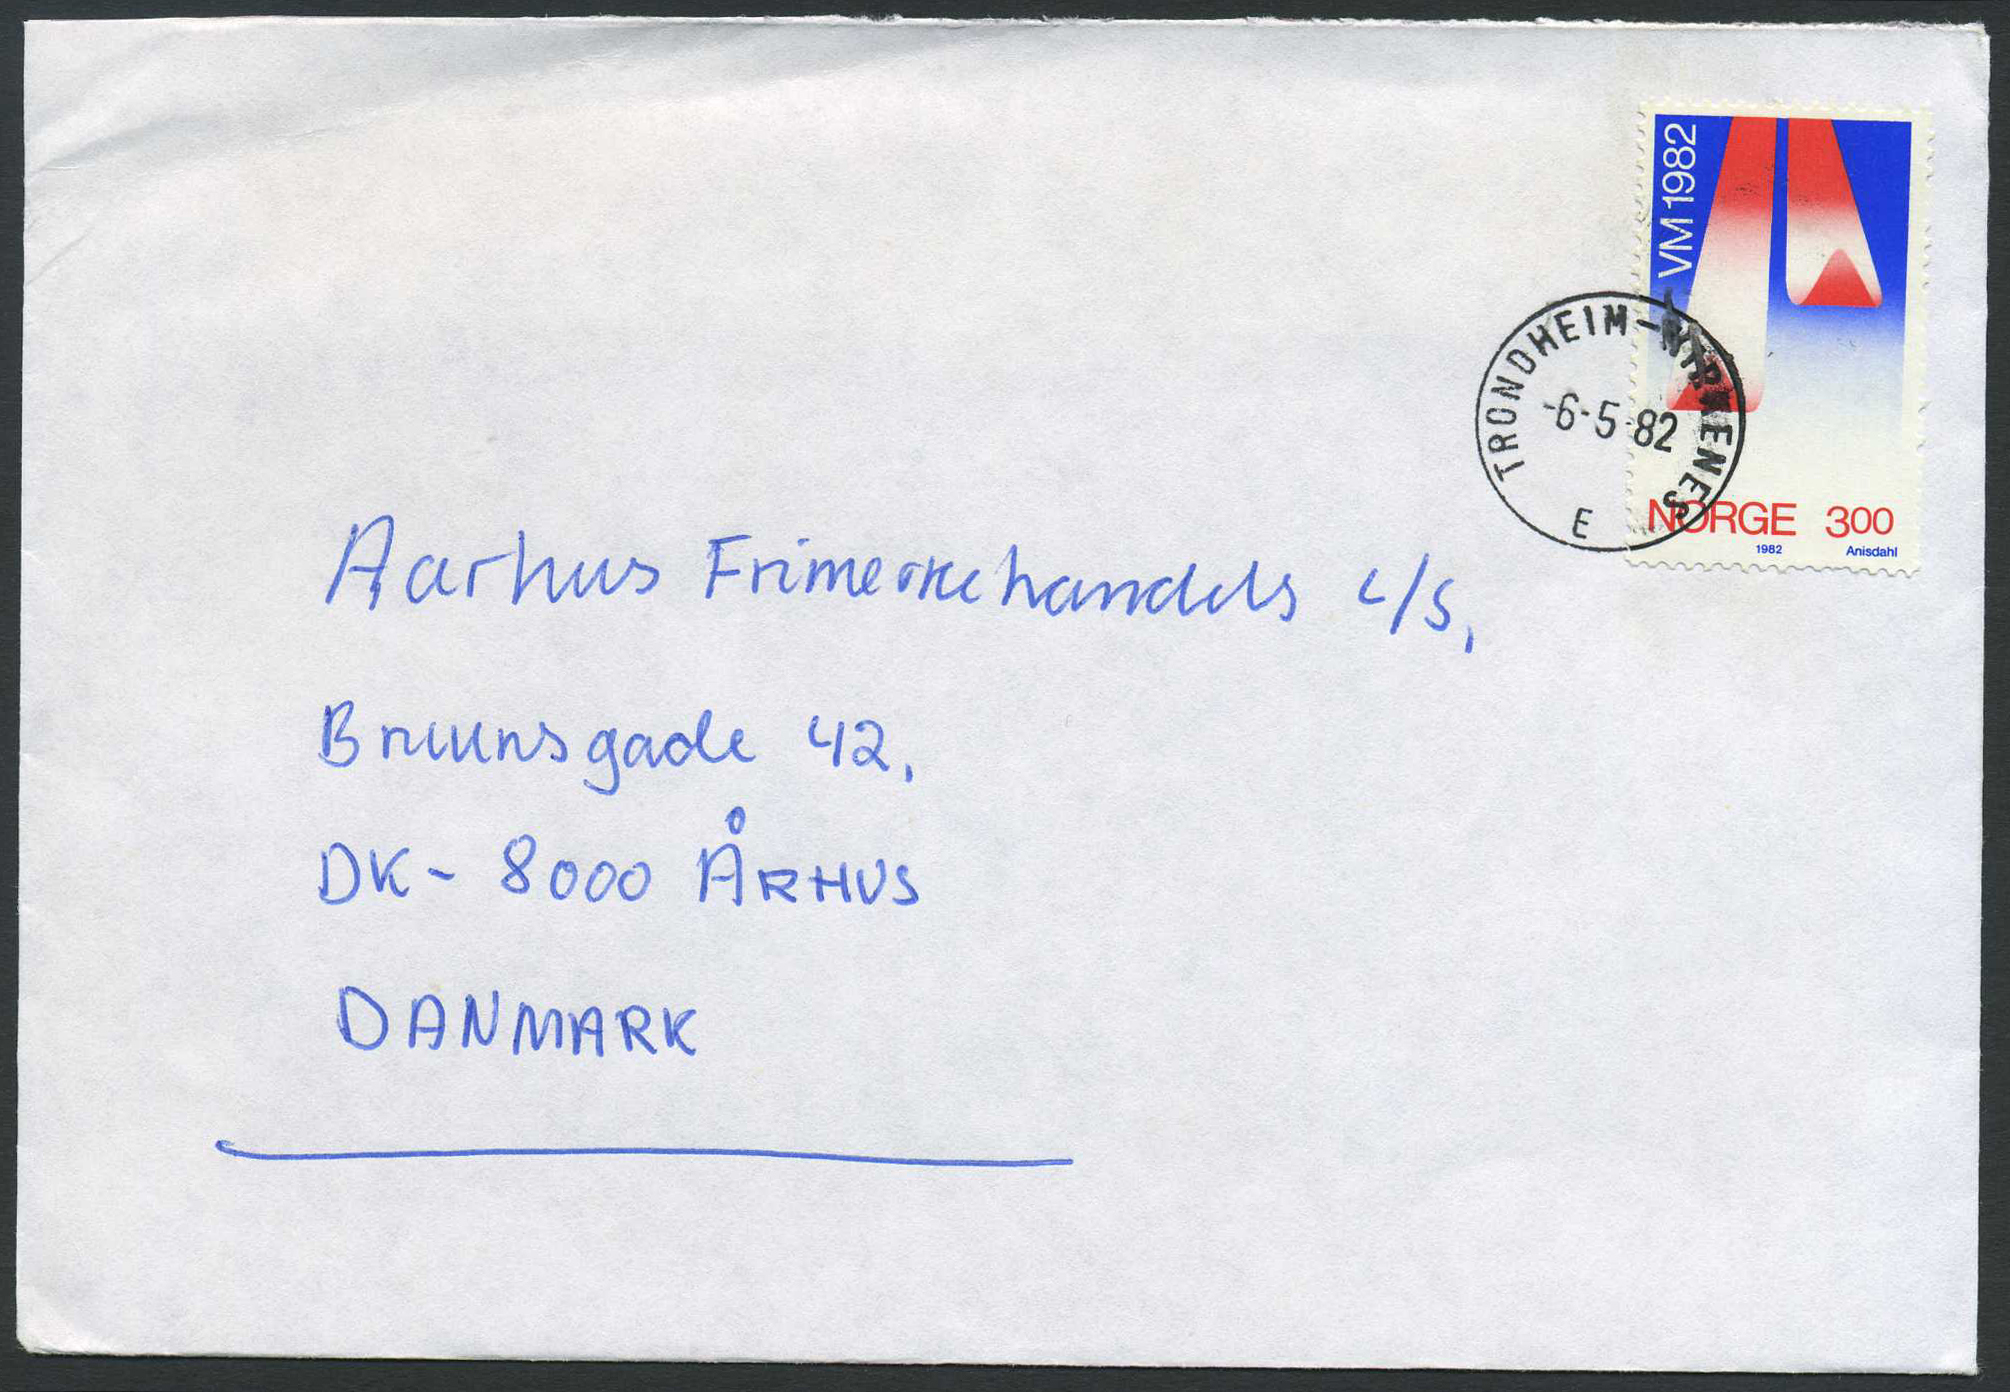 VM 1982
TRONDHEIM-KIRKENES
-6-5-82
E
NORGE 300
1982 Anisdahl
Aarhus Frimerkehandels i/s,
Bruunsgade 42,
DK- 8000 ÅRHUS
DANMARK